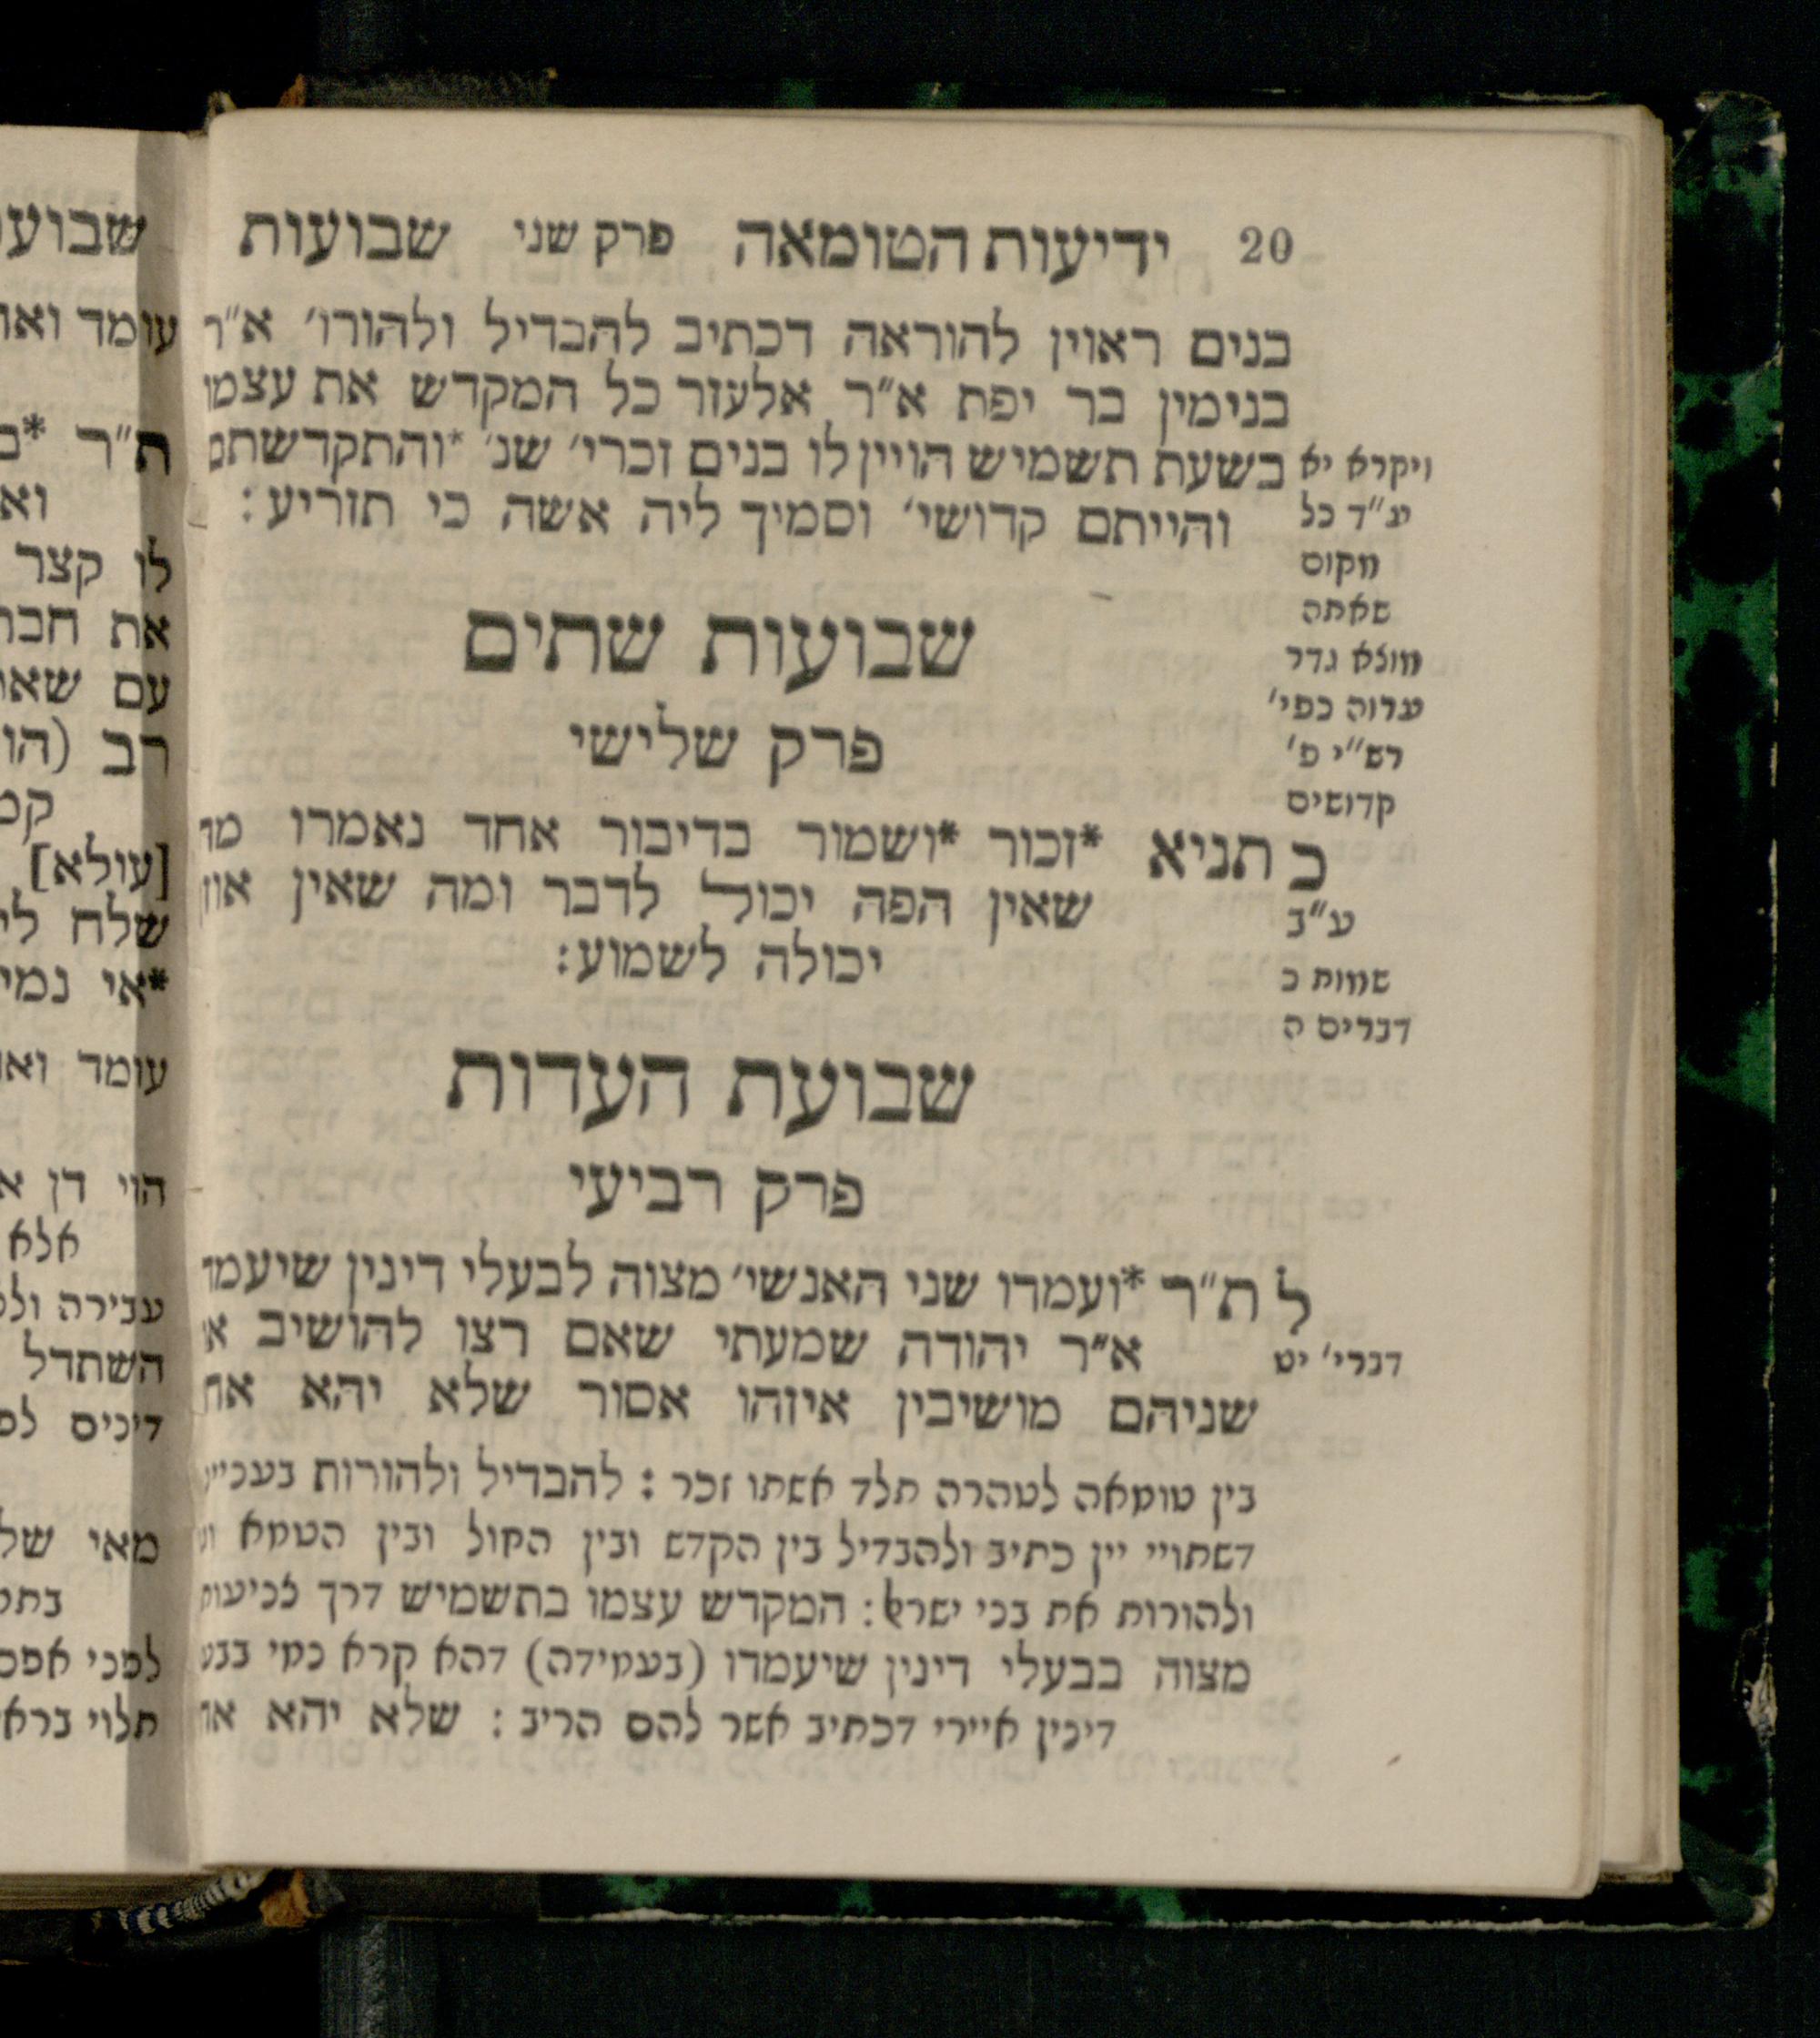 20 ידיעות הטומאה פרק שני שבועות
בנים ראוין להוראה דכתיב להבדיל ולהורו׳ א״ר
בנימין בר יפת א״ר אלעזר כל המקדש את עצמו
בשעת תשמיש הויין לו בנים זכרי׳ שנ׳ *והתקדשתם
והייתם קדושי׳ וסמיך ליה אשה כי תזריע:
ויקרא יא
יע״ד כל
מקום
שאתה
מוצא גדר
ערוה כפי׳
רש״י פ׳
קדושים
שבועות שתים
פרק שלישי
כ תניא *זכור *ושמור בדיבור אחד נאמרו מה
שאין הפה יכול לדבר ומה שאין און
יכולה לשמוע:
ע״ב
שמות כ
דברים ה
שבועת העדות
פרק רביעי
ל ת״ר *ועמדו שני האנשי׳ מצוה לבעלי דינין שיעמדו
א״ר יהודה שמעתי שאם רצו להושיב א
שניהם מושיבין איזהו אסור שלא יהא אח
דברי׳ יט
בין טומאה לטהרה תלד אשתו זכר : להבדיל ולהורות בעניי
דשתויי יין כתיב ולהבדיל בין הקדש ובין החול ובין הטמא ו
ולהורות את בני ישראל: המקדש עצמו בתשמיש דרך צניעות
מצוה בבעלי דינין שיעמדו (בעמידה) דהא קרא נמי בבע
דינין איירי דכתיב אשר להם הריב : שלא יהא אח
שבועו
עומד ואו
ת״ר *
וא
לו קצר
את חבר
עם שאו
רב (הו
[עולא]
שלח לי
*אי נמי
עומד ואו
הוי דן א
אלא
עבירה ול
השתדל
דינים לפ
מאי של
לפני אפס
תלוי ברא